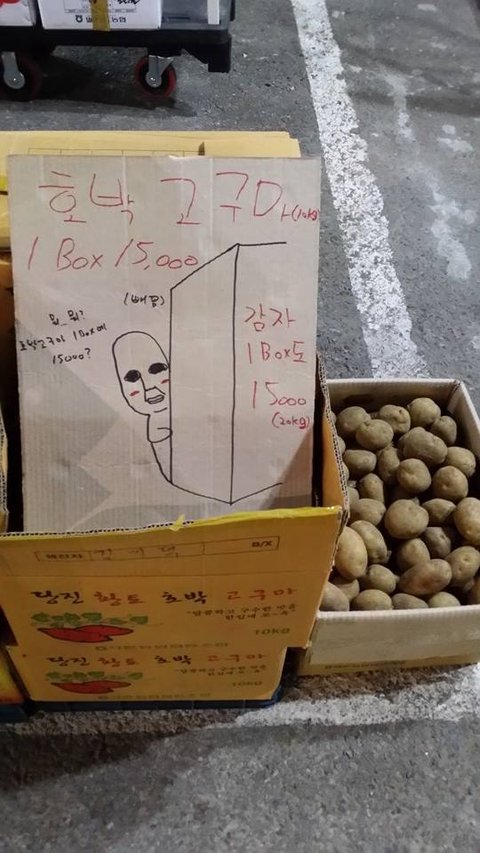 호박 고구마 (10kg)
1 Box 15,000
(빼꼼)
뭐_뭐?
호박고구마 1 Box에
15000?
감자
1 Box도
15000
(20kg)
B/X
당진 황토 호박 고구마
10kg
당진 황토 호박 고구마
10kg